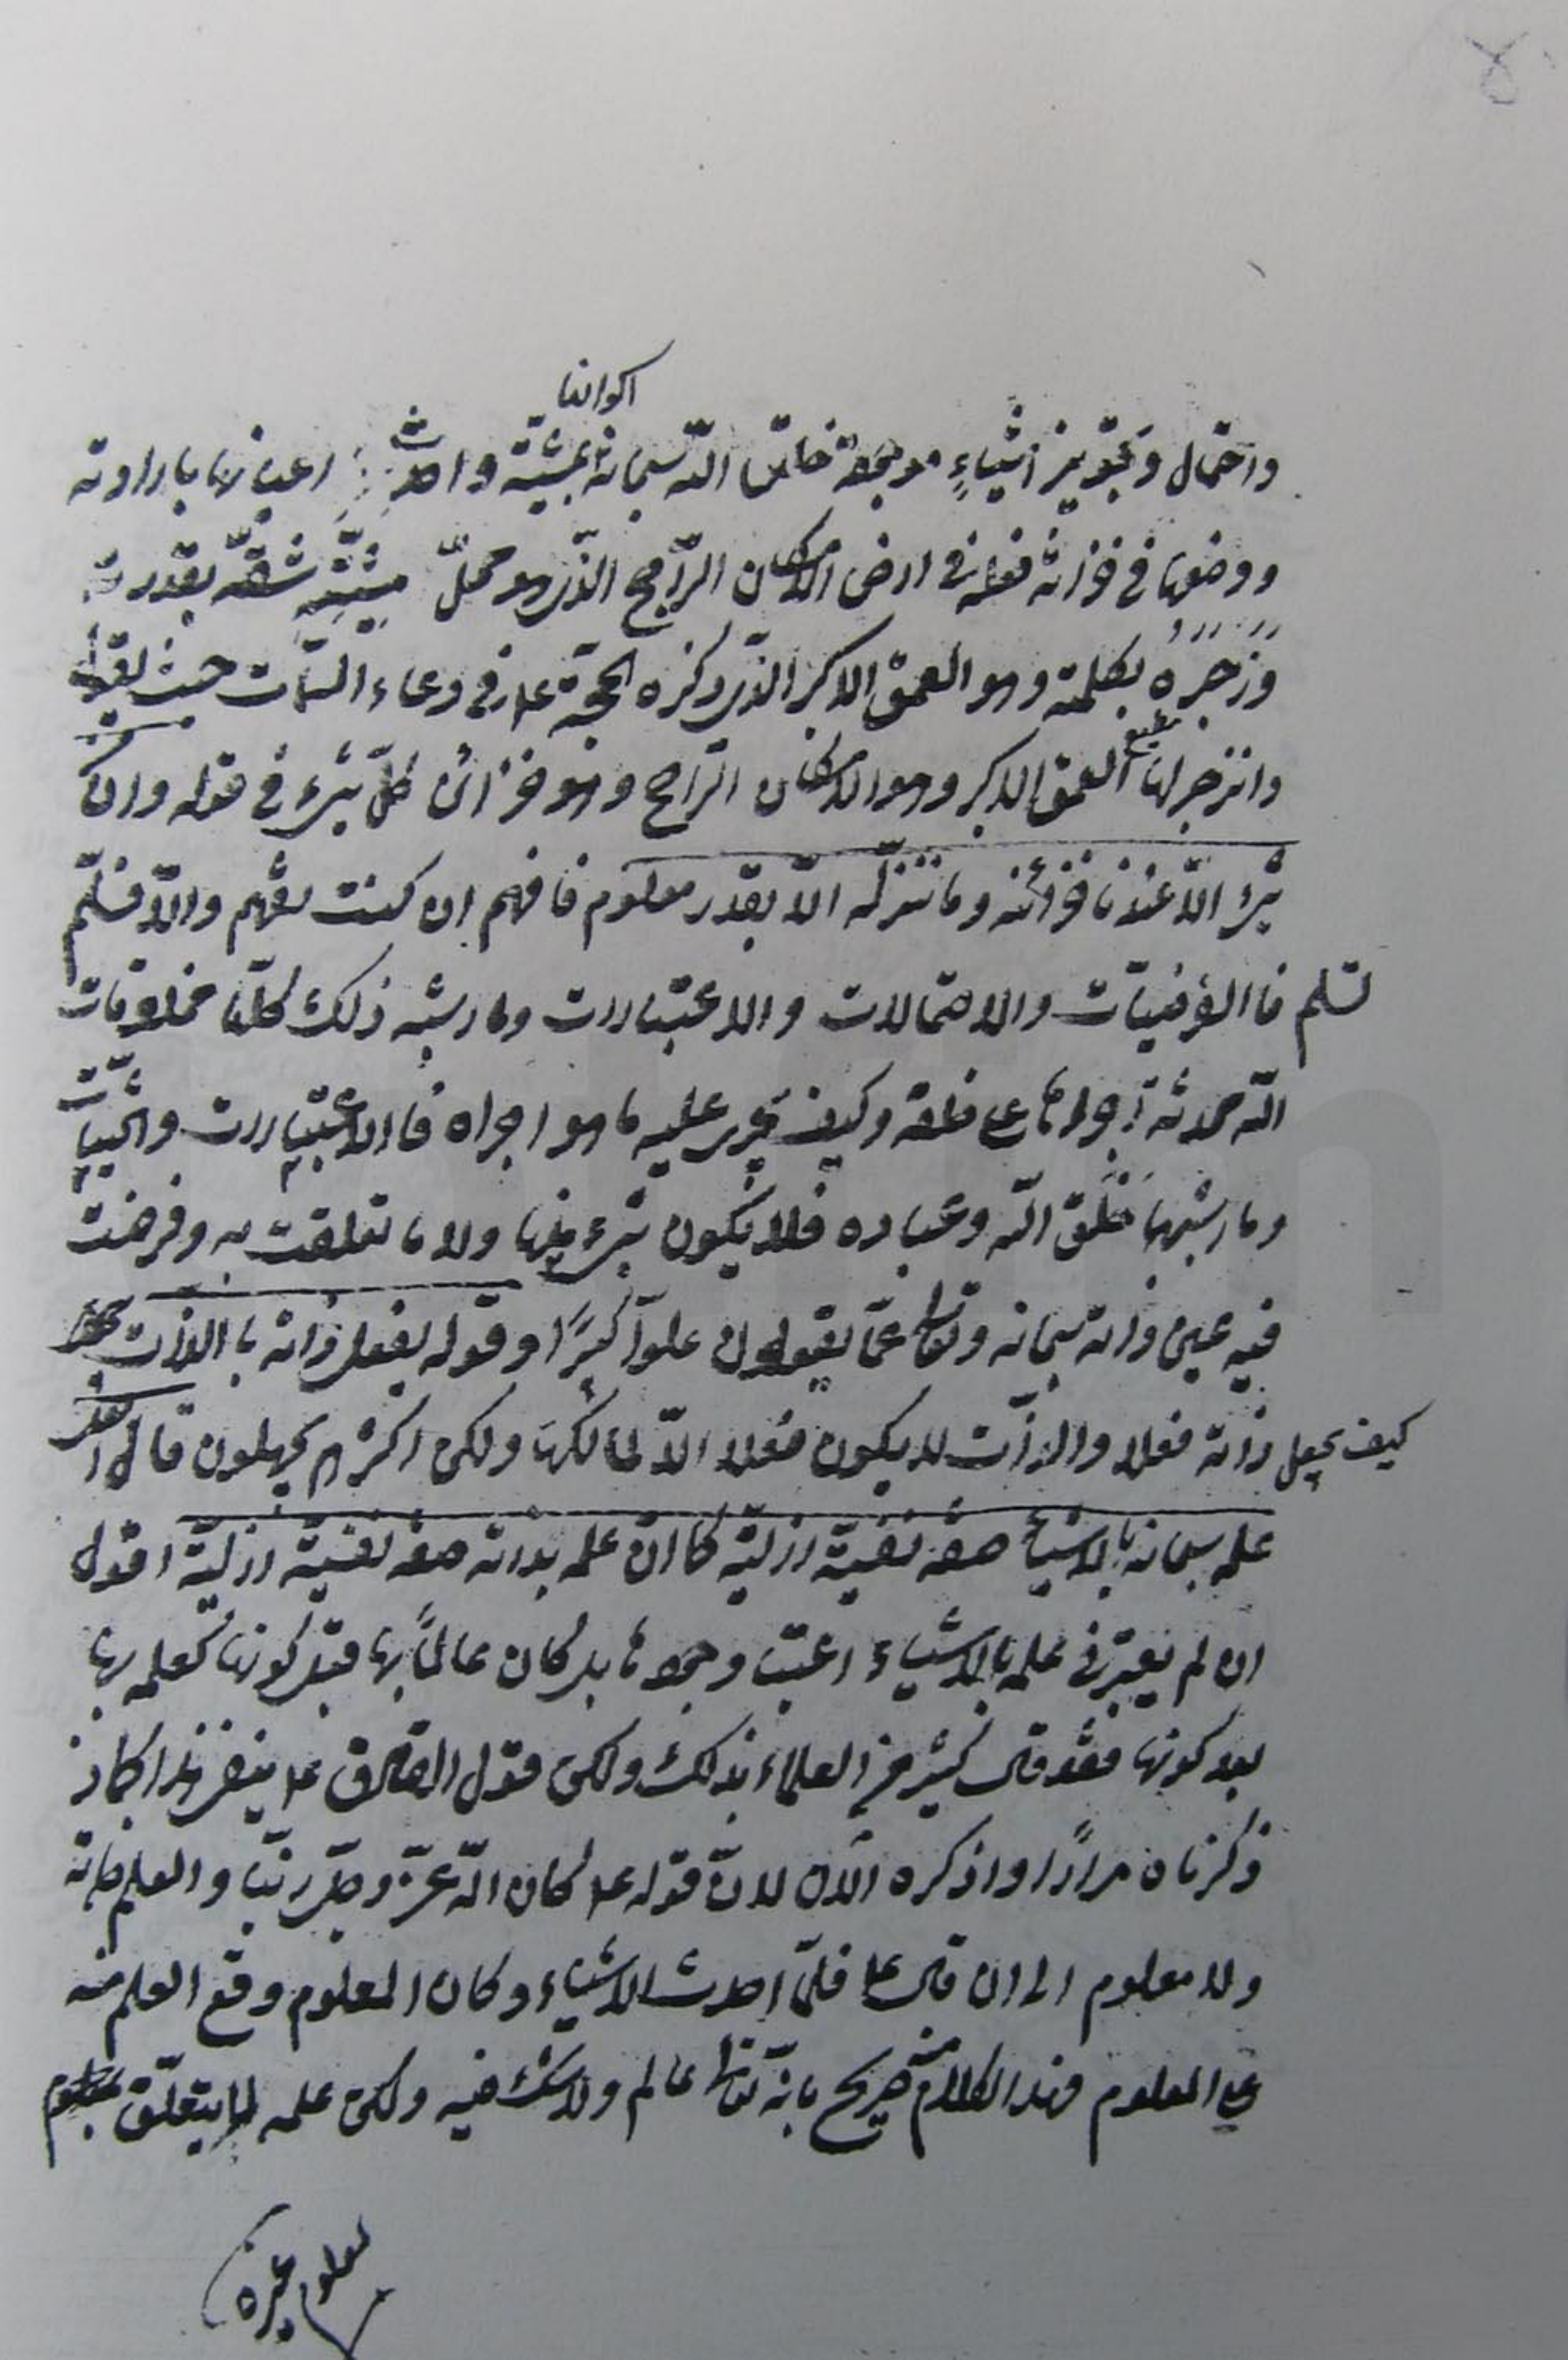 اكوانها
واحتمال وتجويز اشياء موجودة خلقها الله سبحانه بمشيّته واحدث اعيانها بارادته
ووضعها في خزانة فعله في ارض الامكان الرّاجح الذي هو محلّ مشيّته شقّه بقدرته
وزجره بكلمته وهو العمق الاكبر الذي ذكره الحجّة ع في دعاء السّمات حيث يقول
وانزجر لها العمق الاكبر وهو الامكان الرّاجح وهو خزائن كلّ شيء في قوله وان من
شيء الّا عندنا خزائنه وما ننزّله الّا بقدر معلوم فافهم ان كنت تفهم والّا فسلّم
تسلم فالفرضيّات والاحتمالات والاعتبارات وما اشبه ذلك كلّها مخلوقات
الله محدثة اجراها على خلقه وكيف يجري عليه ما هو اجراه فالاعتبارات والحيثيّات
وما اشبهها خلق الله وعباده فلا يكون شيء منها ولا ما تعلقت به وفرضت
فيه عين ذاته سبحانه وتعالى عمّا يقولون علوّا كبيرًا وقوله بفعل ذاته بالذات
كيف يجعل ذاته فعلا والذّات لا يكون فعلا الّا لمالكها ولكن اكثرهم يجهلون قال
علمه سبحانه بالاشياء صفة نفسيّة ازليّة كما انّ علمه بذاته صفة نفسيّة ازليّة اقول
ان لم يعتبر في علمه بالاشياء اعتبار وجودها بل كان عالمًا بها قبل كونها كعلمه بها
بعد كونها فقد قال كثير من العلماء بذلك ولكن قول الصادق ع ينفي هذا كما
ذكرناه مرارًا واذكره الآن لانّ قوله ع كان الله عزّ وجلّ ربّنا والعلم ذاته
ولا معلوم الى ان قال ع فلمّا احدث الاشياء وكان المعلوم وقع العلم منه
على المعلوم وهذا الكلام منه صريح بانّه تعالى عالم ولا شك فيه ولكن علمه لا يتعلّق